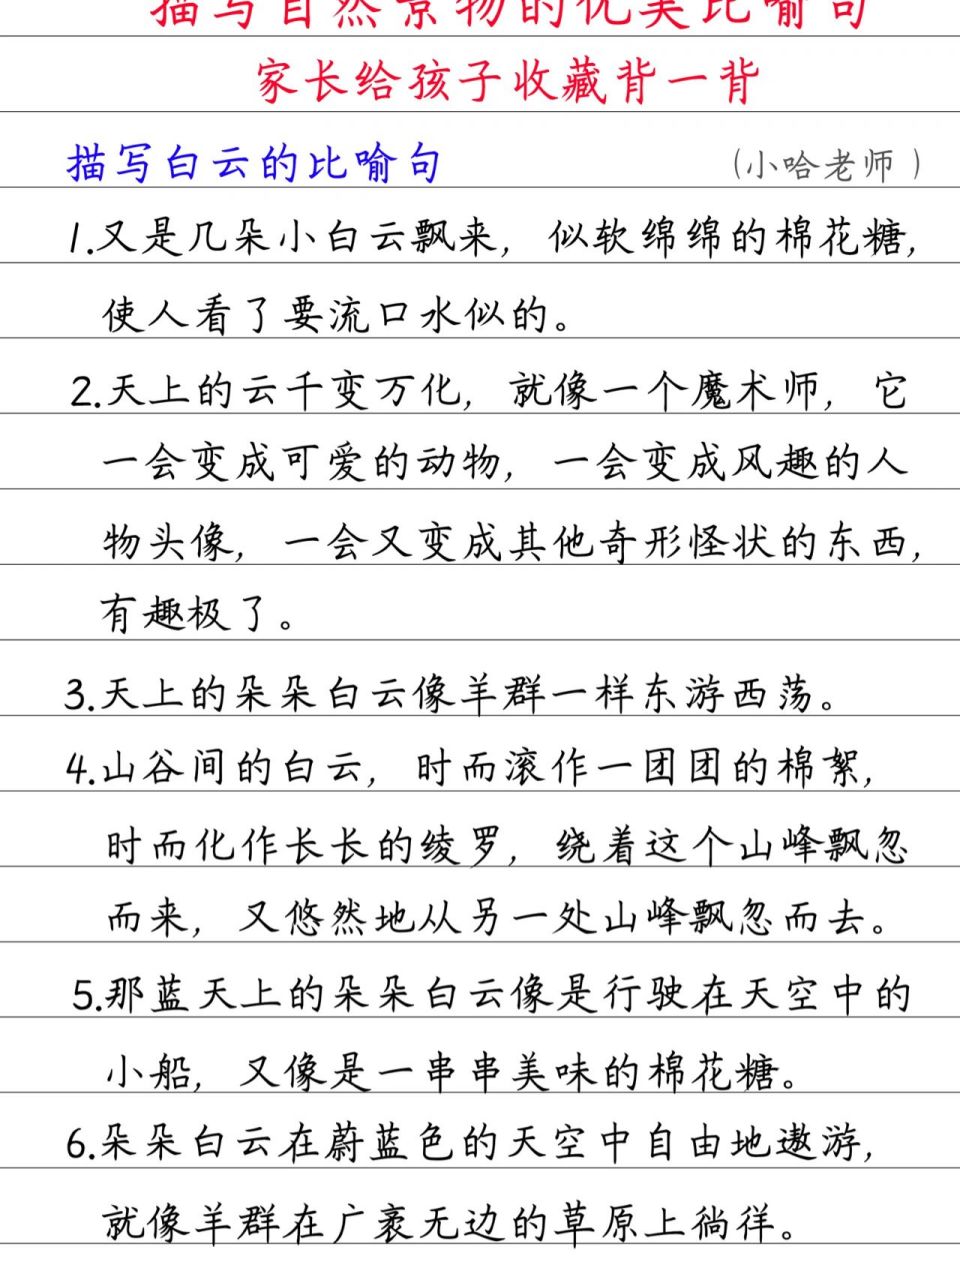 描写自然景物的优美比喻句
家长给孩子收藏背一背
描写白云的比喻句 (小哈老师)
1.又是几朵小白云飘来，似软绵绵的棉花糖，
使人看了要流口水似的。
2.天上的云千变万化，就像一个魔术师，它
一会变成可爱的动物，一会变成风趣的人
物头像，一会又变成其他奇形怪状的东西，
有趣极了。
3.天上的朵朵白云像羊群一样东游西荡。
4.山谷间的白云，时而滚作一团团的棉絮，
时而化作长长的绫罗，绕着这个山峰飘忽
而来，又悠然地从另一处山峰飘忽而去。
5.那蓝天上的朵朵白云像是行驶在天空中的
小船，又像是一串串美味的棉花糖。
6.朵朵白云在蔚蓝色的天空中自由地遨游，
就像羊群在广袤无边的草原上徜徉。